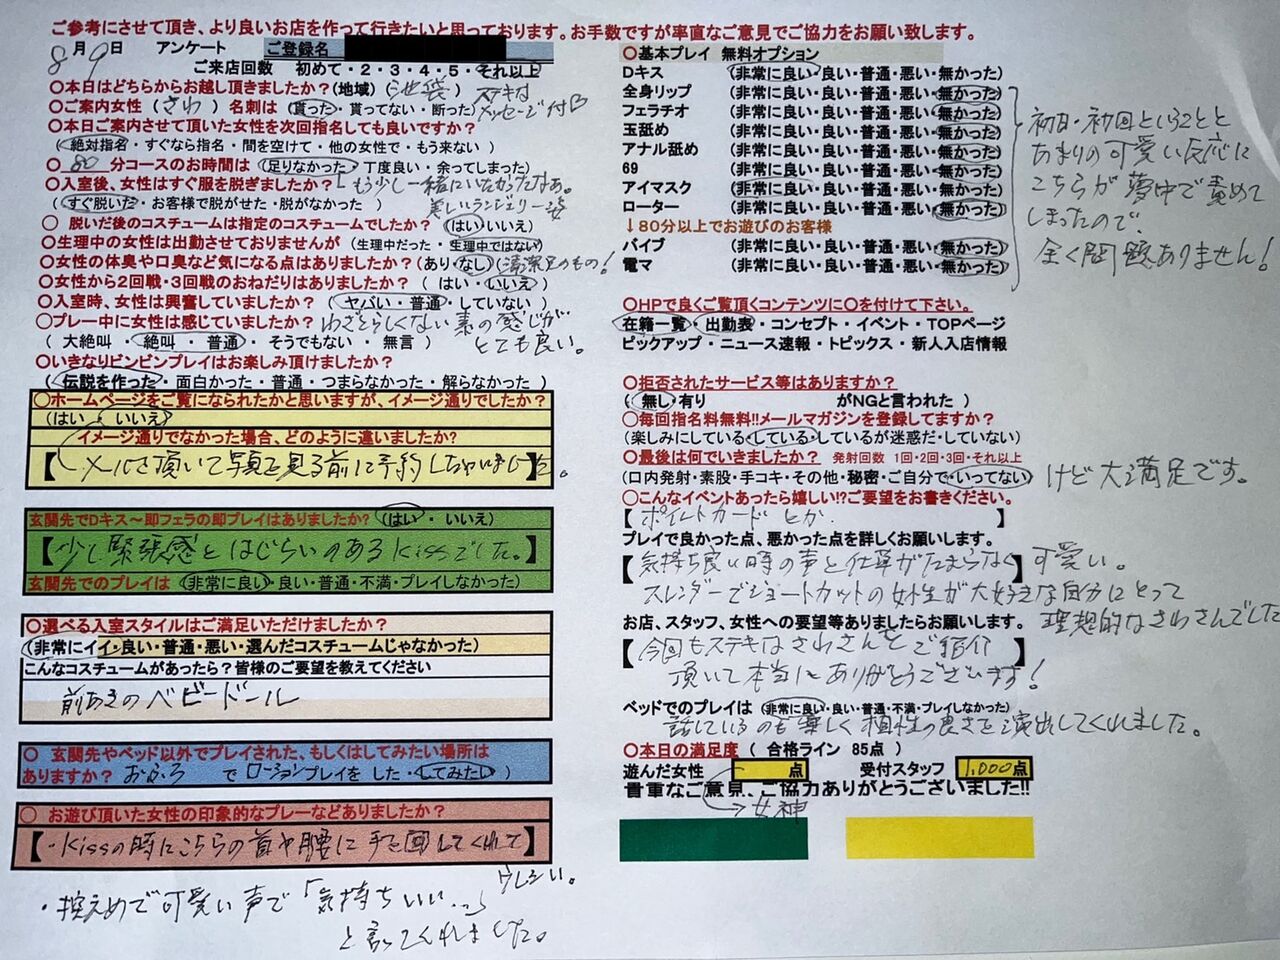 ご参考にさせて頂き、より良いお店を作って行きたいと思っております。お手数ですが率直なご意見でご協力をお願い致します。
8月9日 アンケート ご登録名
ご来店回数 初めて・2・3・4・5・それ以上
〇本日はどちらからお越し頂きましたか?(地域)(池袋)
〇ご案内女性(さわ)名刺は(貰った・貰ってない・断った)ステキなメッセージ付
〇本日ご案内させて頂いた女性を次回指名しても良いですか?
(絶対指名・すぐなら指名・間を空けて・他の女性で・もう来ない)
〇 80 分コースのお時間は(足りなかった・丁度良い・余ってしまった)
もう少し一緒にいたかったなぁ。
〇入室後、女性はすぐ服を脱ぎましたか?
(すぐ脱いだ・お客様で脱がせた・脱がなかった)美しいランジェリー姿
〇 脱いだ後のコスチュームは指定のコスチュームでしたか?(はい・いいえ)
〇生理中の女性は出勤させておりませんが(生理中だった・生理中ではない)
〇女性の体臭や口臭など気になる点はありましたか?(あり・なし)(清潔そのもの!
〇女性から2回戦・3回戦のおねだりはありましたか?(はい・いいえ)
〇入室時、女性は興奮していましたか?(ヤバい・普通・していない)
〇プレー中に女性は感じていましたか?わざとらしくない素の感じが
とても良い。
(大絶叫・絶叫・普通・そうでもない・無言)
〇いきなりビンビンプレイはお楽しみ頂けましたか?
(伝説を作った・面白かった・普通・つまらなかった・解らなかった)
〇ホームページをご覧になられたかと思いますが、イメージ通りでしたか?
(はい・いいえ)
イメージ通りでなかった場合、どのように違いましたか?
【メールを頂いて写真を見る前に予約しちゃいました】。
玄関先でDキス~即フェラの即プレイはありましたか?(はい・いいえ)
【少し緊張感とはじらいのあるkissでした。】
玄関先でのプレイは(非常に良い・良い・普通・不満・プレイしなかった)
〇選べる入室スタイルはご満足いただけましたか?
(非常にイイ・良い・普通・悪い・選んだコスチュームじゃなかった)
こんなコスチュームがあったら?皆様のご要望を教えてください
前あきのベビードール
〇 玄関先やベッド以外でプレイされた、もしくはしてみたい場所は
ありますか?おふろ でローションプレイをした・してみたい)
〇 お遊び頂いた女性の印象的なプレーなどありましたか?
【・Kissの時にこちらの首や腰に手を回してくれて】
ウレシい。
・控えめで可愛い声で「気持ちいい…」
と言ってくれました。
〇基本プレイ 無料オプション
Dキス (非常に良い・良い・普通・悪い・無かった)
全身リップ (非常に良い・良い・普通・悪い・無かった)
フェラチオ (非常に良い・良い・普通・悪い・無かった)
玉舐め (非常に良い・良い・普通・悪い・無かった)
アナル舐め (非常に良い・良い・普通・悪い・無かった)
69 (非常に良い・良い・普通・悪い・無かった)
アイマスク (非常に良い・良い・普通・悪い・無かった)
ローター (非常に良い・良い・普通・悪い・無かった)
↓80分以上でお遊びのお客様
バイブ (非常に良い・良い・普通・悪い・無かった)
電マ (非常に良い・良い・普通・悪い・無かった)
初日・初回ということと
あまりの可愛い反応に
こちらが夢中で責めて
しまったので、
全く問題ありません!
〇HPで良くご覧頂くコンテンツに〇を付けて下さい。
在籍一覧・出勤表・コンセプト・イベント・TOPページ
ピックアップ・ニュース速報・トピックス・新人入店情報
〇拒否されたサービス等はありますか?
(無し・有り がNGと言われた)
〇毎回指名料無料!!メールマガジンを登録してますか?
(楽しみにしている・している・しているが迷惑だ・していない)
〇最後は何でいきましたか? 発射回数 1回・2回・3回・それ以上
(口内発射・素股・手コキ・その他・秘密・ご自分で・いってない)けど大満足です。
〇こんなイベントあったら嬉しい!?ご要望をお書きください。
【ポイントカードとか】
プレイで良かった点、悪かった点を詳しくお願いします。
【気持ち良い時の声と仕草がたまらなく】可愛い。
スレンダーでショートカットの女性が大好きな自分にとって
理想的なさわさんでした
お店、スタッフ、女性への要望等ありましたらお願いします。
【今回もステキなさわさんをご紹介】
頂いて本当にありがとうございます!
ベッドでのプレイは(非常に良い・良い・普通・不満・プレイしなかった)
話しているのも楽しく相性の良さを演出してくれました。
〇本日の満足度(合格ライン 85点)
遊んだ女性 点 受付スタッフ 1,000点
貴重なご意見、ご協力ありがとうございました!!
→女神